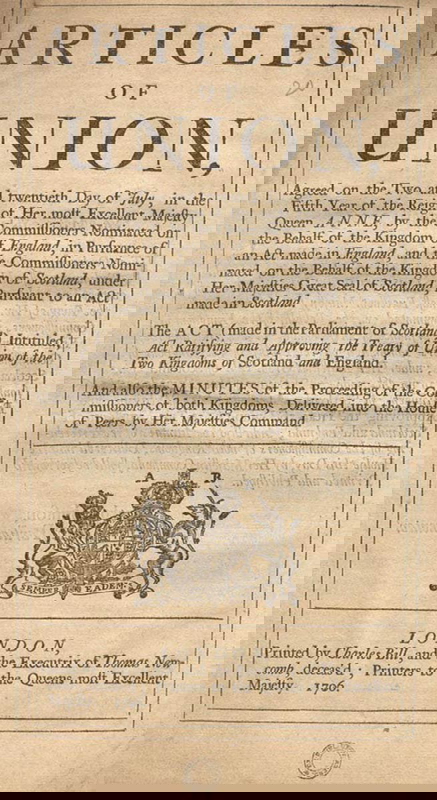 ARTICLES
OF
UNION,
Agreed on the Two and twentieth Day of July, in the
Fifth Year of the Reign of Her most Excellent Majesty
Queen ANNE, by the Commissioners Nominated on
the Behalf of the Kingdom of England, in Pursuance of
an Act made in England, and the Commissioners Nomi-
nated on the Behalf of the Kingdom of Scotland, under
Her Majesties Great Seal of Scotland, Pursuant to an Act
made in Scotland.
The ACT made in the Parliament of Scotland, Intituled
Act Ratifying and Approving the Treaty of Union of the
Two Kingdoms of Scotland and England.
And also the MINUTES of the Proceeding of the Com-
missioners of both Kingdoms. Delivered into the House
of Peers by Her Majesties Command.
A R
SEMPER EADEM
LONDON,
Printed by Charles Bill, and the Executrix of Thomas New-
comb, deceas'd; Printers to the Queens most Excellent
Majesty. 1706